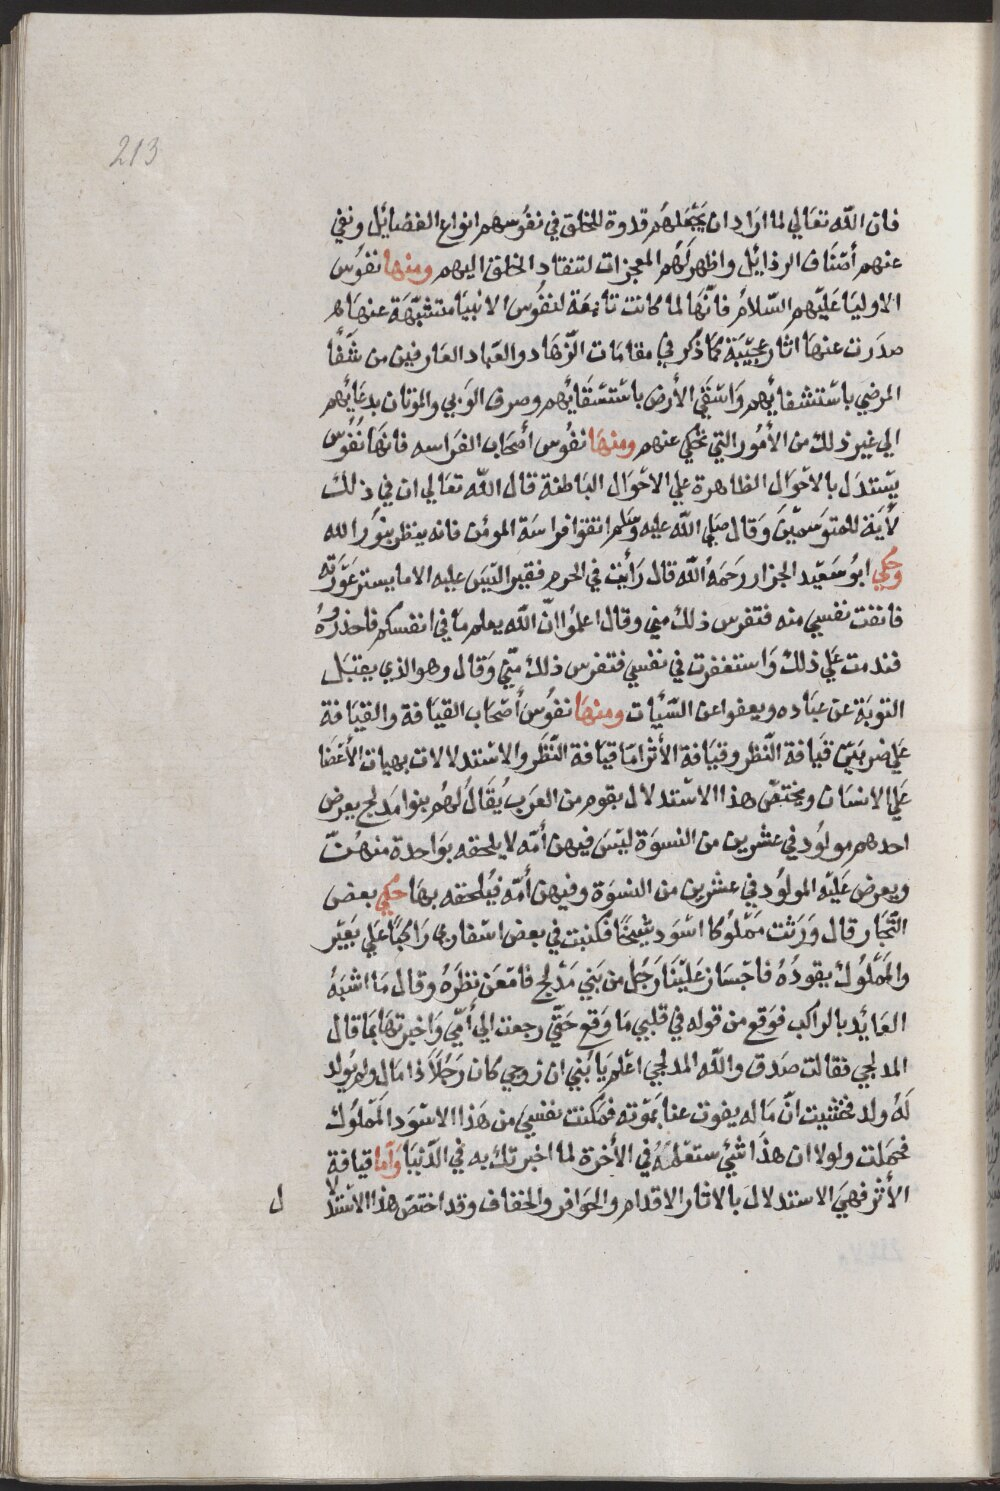 213
فان الله تعالي لما اراد ان يجعلهم قدوة للخلق في نفوسهم انواع الفضايل ونفي
عنهم أصناف الرذايل واظهر لهم المعجزات لتنقاد الخلق اليهم ومنها نفوس
الاوليا عليهم السلام فانها لما كانت تابعة لنفوس الانبيا متشبهة عنها م
صدرت عنها اثار عجيبة كما ذكر في مقامات الزهاد والعباد العارفين من شفا
المرضي باستشفايهم واسقي الأرض باستسقايهم وصرف الوبي والموتان بدعايهم
الي غير ذلك من الأمور التي تحكي عنهم ومنها نفوس أصحاب الفراسه فانها نفوس
يستدل بالاحوال الظاهرة علي الاحوال الباطنة قال الله تعالي ان في ذلك
لأية للمتوسمين وقال صلي الله عليه وسلم اتقوا فراسة المؤمن فانه ينظر بنور الله
وحكي ابو سعيد الجزار رحمه الله قال رأيت في الحرم فقير اليس عليه الا ما يستر عورته
فانفت نفسي منه فتفرس ذلك مني وقال اعلموا ان الله يعلم ما في انفسكم فاحذروه
فندمت علي ذلك واستغفرت في نفسي فتفرس ذلك مني وقال وهو الذي يقبل
التوبة عن عباده ويعفوا عن السيات ومنها نفوس أصحاب القيافة والقيافة
علي ضربين قيافة النظر وقيافة الأثر اما قيافة النظر والاستدلالات بهيات الأعضا
علي الانسان ويختص هذا الاستدلال بقوم من العرب يقال لهم بنوا مدلج يعرض
احدهم مولود في عشرين من النسوة ليس فيهن أمه لا يلحقه بواحدة منهن
ويعرض عليه المولود في عشرين من النسوة وفيهن أمه فيلحقه بها حكي بعض
التجار قال ورثت مملوكا اسود شيخا فكنت في بعض اسفاري راكبا علي بعير
والمملوك يقوده فاجتاز علينا رجل من بني مدلج فامعن نظره وقال ما اشبه
القايد بالراكب فوقع من قوله في قلبي ما وقع حتي رجعت الي أمي واخبرتها بما قال
المدلجي فقالت صدق والله المدلجي اعلم يا بني ان زوجي كان رجلا ذا مال ولم يولد
له ولد فخشيت ان ماله يفوت عنا بموته فمكنت نفسي من هذا الاسود المملوك
فحملت ولولا ان هذا شي ستعلمه في الأخرة لما اخبرتك به في الدنيا وأما قيافة
الأثر فهي الاستدلال بالاثار الاقدام والحوافر والخفاف وقد اختص هذا الاستدلا
ل